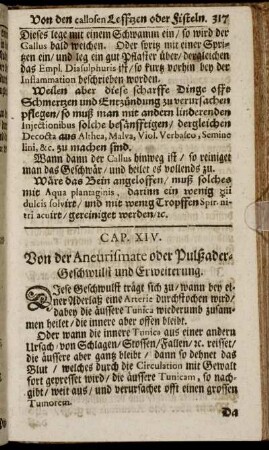 Von den callosen Lefftzen oder Fisteln. 317
Dieses lege mit einem Schwamm ein/ so wird der
Callus bald weichen. Oder spritz mit einer Sprit-
zen ein/ und leg ein gut Pflaster über/ dergleichen
das Empl. Diasulphuris ist/ so kurtz vorhin bey der
Inflammation beschrieben worden.
Weilen aber diese scharffe Dinge offt
Schmertzen und Entzündung zu verursachen
pflegen/ so muß man mit andern lindernden
Injectionibus solche besänfftigen/ dergleichen
Decocta aus Althea, Malva, Viol. Verbasco, Semine
lini, &c. zu machen sind.
Wann dann der Callus hinweg ist/ so reiniget
man das Geschwär/ und heilet es vollends zu.
Wäre das Bein angeloffen/ muß solches
mit Aqua plantaginis, darinn ein wenig
dulcis solvirt/ und mit wenig Tropffen Spir. ni-
tri acuirt/ gereiniget werden/ &c.
CAP. XIV.
Von der Aneurismate oder Pulßader-
Geschwulst und Erweiterung.
DJese Geschwulst trägt sich zu/ wann bey ei-
ner Aderlaß eine Arterie durchstochen wird/
dabey die äussere Tunica wiederumb zusam-
men heilet/ die innere aber offen bleibt.
Oder wann die innere Tunica aus einer andern
Ursach/ von Schlagen/ Stossen/ Fallen/ &c. reisset/
die äussere aber gantz bleibt/ dann so dehnet das
Blut/ welches durch die Circulation mit Gewalt
fort gepresset wird/ die äussere Tunicam, so nach-
gibt/ weit aus/ und verursachet offt einen grossen
Tumorem.
Da